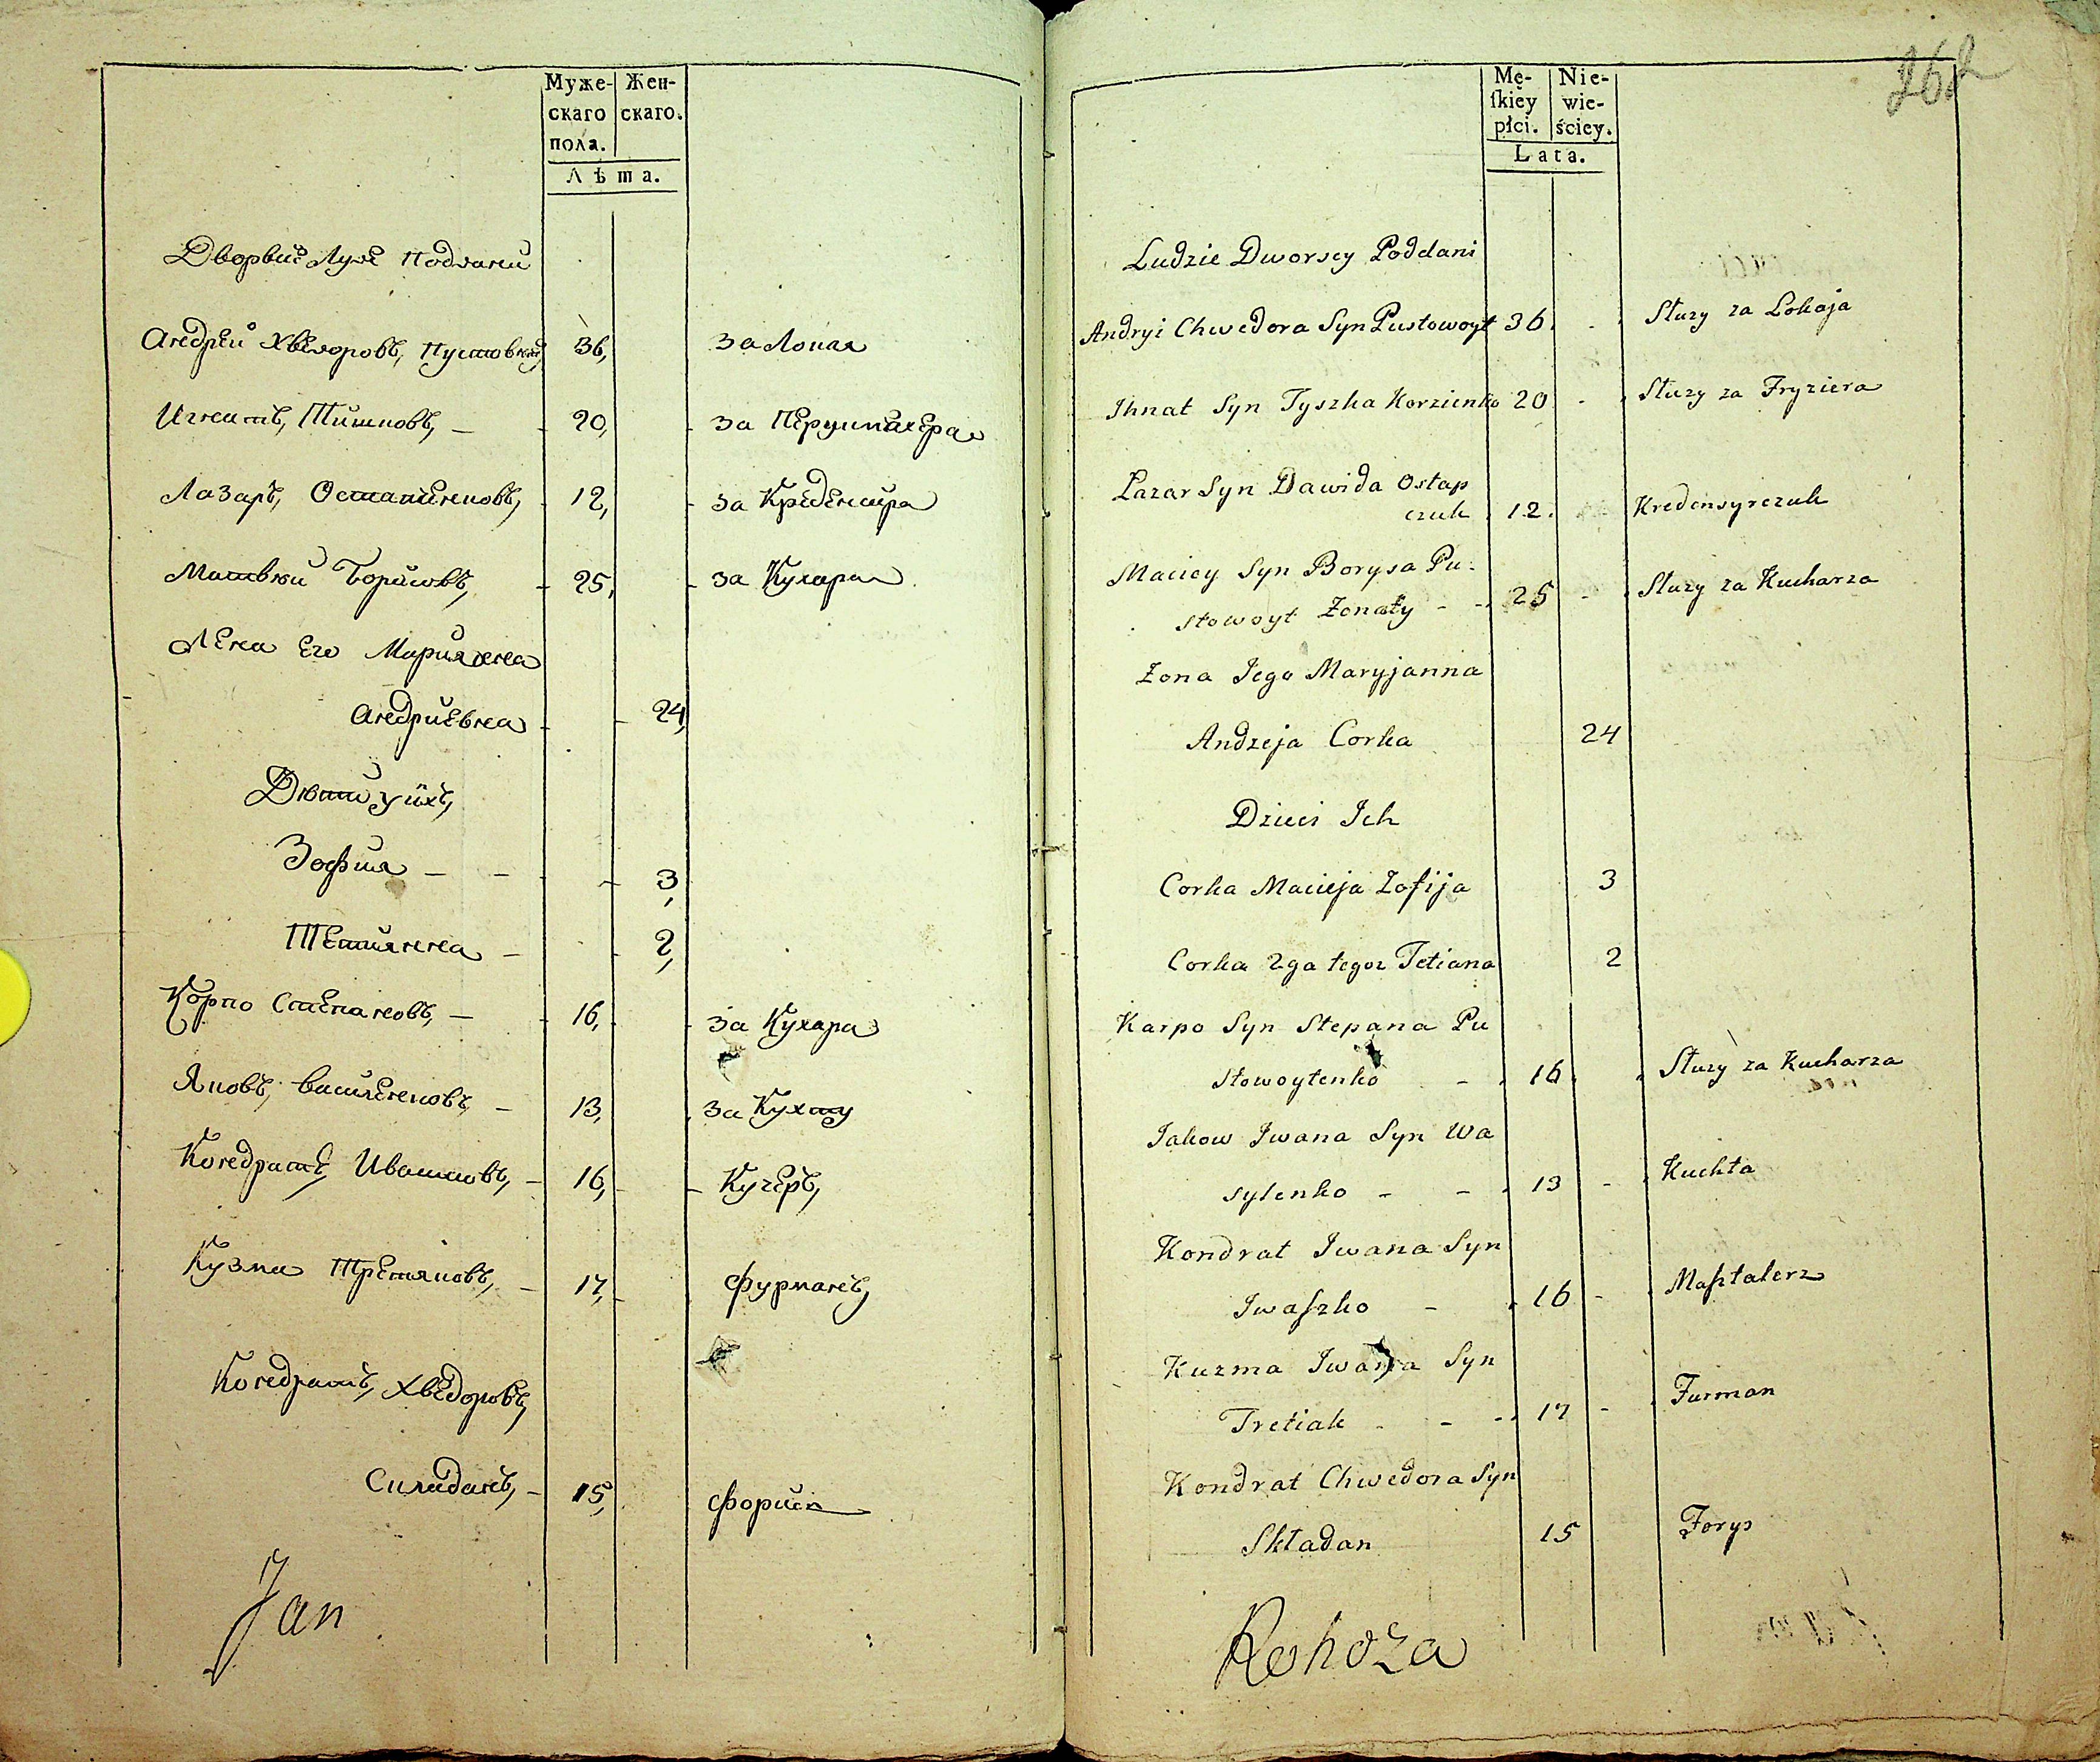 Муже-
скаго
пола.
Жен-
скаго.
Лѣта.
Дворвий Луде Подданий
Андрей Хведоровъ, Пустовойт 36, за Локая
Игнатъ, Тишковъ, — 20, за Перукмахера
Лазаръ, Остапченковъ, 12, за Креденсира
Матвѣй Борисовъ, 25, за Кухара
Жена Его Мариянна
Андриевна 24,
Дѣти у ихъ,
Зофия — — 3,
Тетиянна — 2,
Корпо Степановъ, — 16, за Кухара
Яковъ, Василенковъ, — 13, за Кухту
Кондратъ, Ивашковъ, — 16, Кучеръ,
Кузма Третяковъ, — 17, Фурманъ,
Кондратъ, Хведоровъ,
Складанъ, — 15, Форис
Jan
262
Mę-
skiey
płci.
Nie-
wie-
ściey.
Lata.
Ludzie Dworscy Poddani
Andryi Chwedora Syn Pustowoyt 36. Służy za Lokaja
Ihnat Syn Tyszka Korzienko 20 Służy za Fryziera
Łazar Syn Dawida Ostap
czuk 12. Kredensyrczuk
Maciey Syn Borysa Pu-
stowoyt Żonaty - - 25 - Służy za Kucharza
Zona Jego Maryjanna
Andzeja Corka 24
Dzieci Ich
Corka Macieja Zofija 3
Corka 2ga tegoz Tetiana 2
Karpo Syn Stepana Pu
stowoytenko - 16. Służy za Kucharza
Jakow Iwana Syn Wa
sylenko - - 13 - Kuchta
Kondrat Iwana Syn
Iwaszko - 16 - Masztalerz
Kuzma Iwana Syn
Tretiak - - 17 - Furman
Kondrat Chwedora Syn
Składan 15 Forys
Rohoza